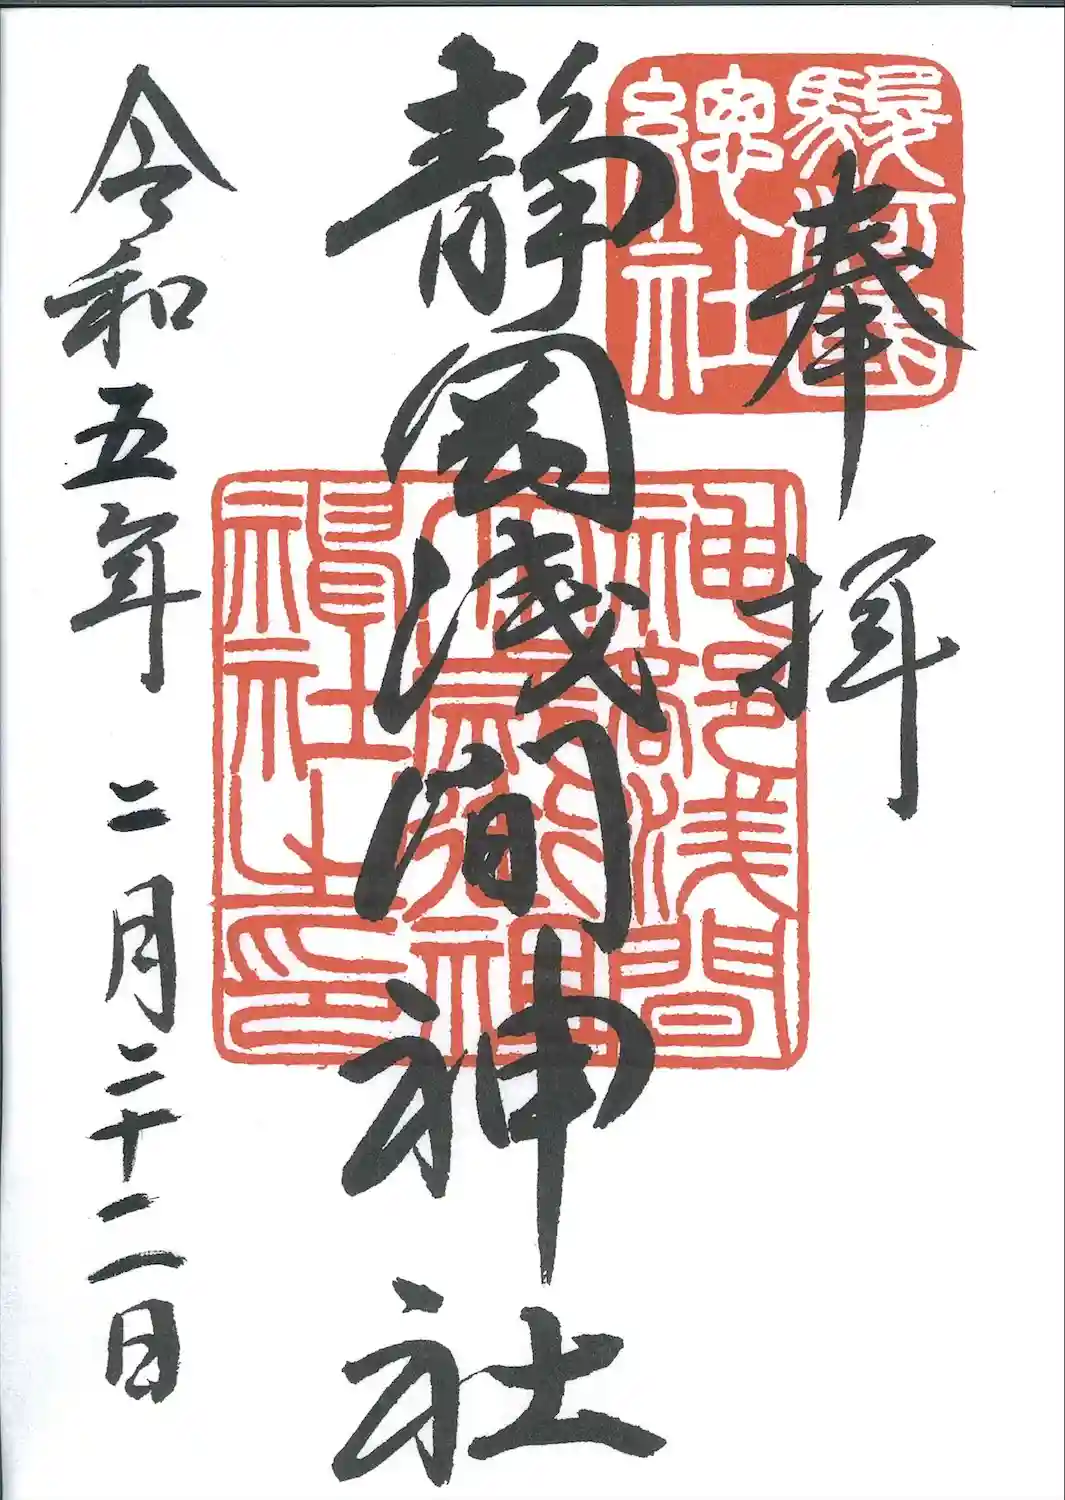 駿河國
總社
奉拝
静岡浅間神社
神部浅間
大歳御祖
神社之印
令和五年 二月二十二日